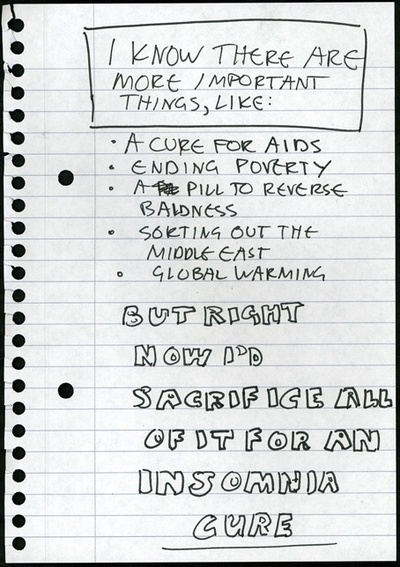 I KNOW THERE ARE
MORE IMPORTANT
THINGS, LIKE:
• A CURE FOR AIDS
• ENDING POVERTY
• A PILL TO REVERSE
BALDNESS
• SORTING OUT THE
MIDDLE EAST
• GLOBAL WARMING
BUT RIGHT
NOW I'D
SACRIFICE ALL
OF IT FOR AN
INSOMNIA
CURE